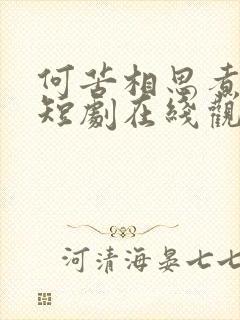 何苦相思煮
短劇在綫觀
河清海晏七七